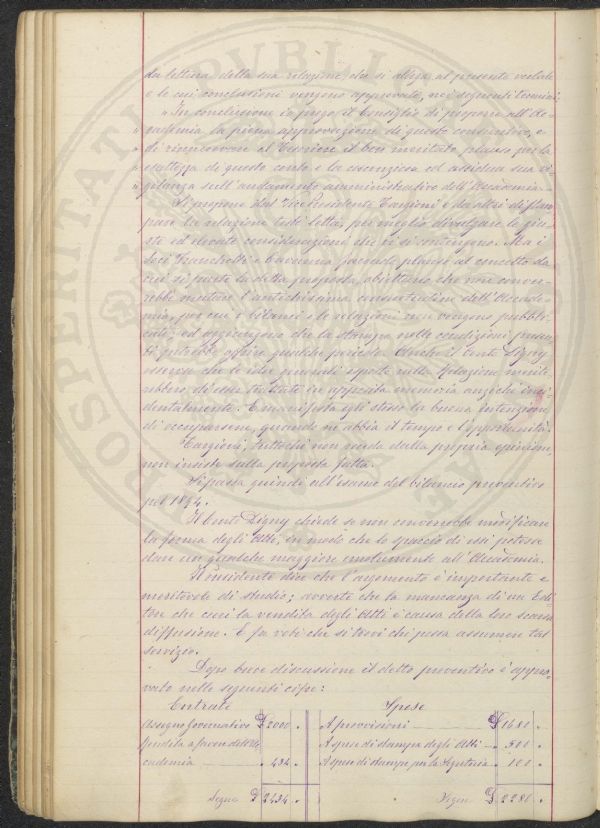 da lettura della sua relazione, che si allega al presente verbale
e le cui conclusioni vengono approvate, nei seguenti termini.
"In conclusione io prego il Consiglio di proporre all'Ac-
" cademia la piena approvazione di questo consuntivo, e
" di rinnuovare al Tesoriere il ben meritato plauso per la
" esattezza di questo conto e la coscenziosa ed assidua sua vi-
" gilanza sull'andamento amministrativo dell'Accademia.-
Si propone dal Vice Presidente Targioni e da altri di stam-
pare la relazione testè letta, per meglio divulgare le giu-
ste ed elevate considerazioni che vi si contengono. Ma i
Soci Franchetti e Caruana facendo plauso al concetto da
cui si parte la detta proposta, obiettano che non conver-
rebbe mutare l'antichissima consuetudine dell'Accade-
mia, per cui i bilanci e le relazioni non vengono pubbli-
cati; ed aggiungono che la stampa nelle condizioni presen-
ti potrebbe offrire qualche pericolo. Anche il Conte Digny
osserva che le idee quindi esposte nella Relazione merite-
rebbero di esser trattate in apposita memoria anzichè inci-
dentalmente. E manifesta egli stesso la buona intenzione
di occuparsene, quando ne abbia il tempo e l'opportunità.
Targioni, tuttochè non receda dalla propria opinione,
non insiste sulla proposta fatta.
Si passa quindi all'esame del bilancio preventivo
pel 1894.
Il Conte Digny chiede se non converrebbe modificare
la forma degli Atti, in modo che lo spaccio di essi potesse
dare un qualche maggiore emolumento all'Accademia.
Il Presidente dice che l'argomento è importante e
meritevole di studio; avverte che la mancanza di un Edi-
tore che curi la vendita degli Atti è causa della loro scarsa
diffusione. E fa voti che si trovi chi possa assumere tal
servizio.
Dopo breve discussione il detto preventivo è appro-
vato nelle seguenti cifre:
Entrate Spese
Assegno Governativo £ 2000 . A provvisioni £ 1680 .
Rendita a favore dell'Ac- A spese di stampa degli Atti - . 500 .
cademia - . 434 . A spese di stampe per la Segreteria - . 101 .
Segue £ 2434 . Segue £ 2281 .